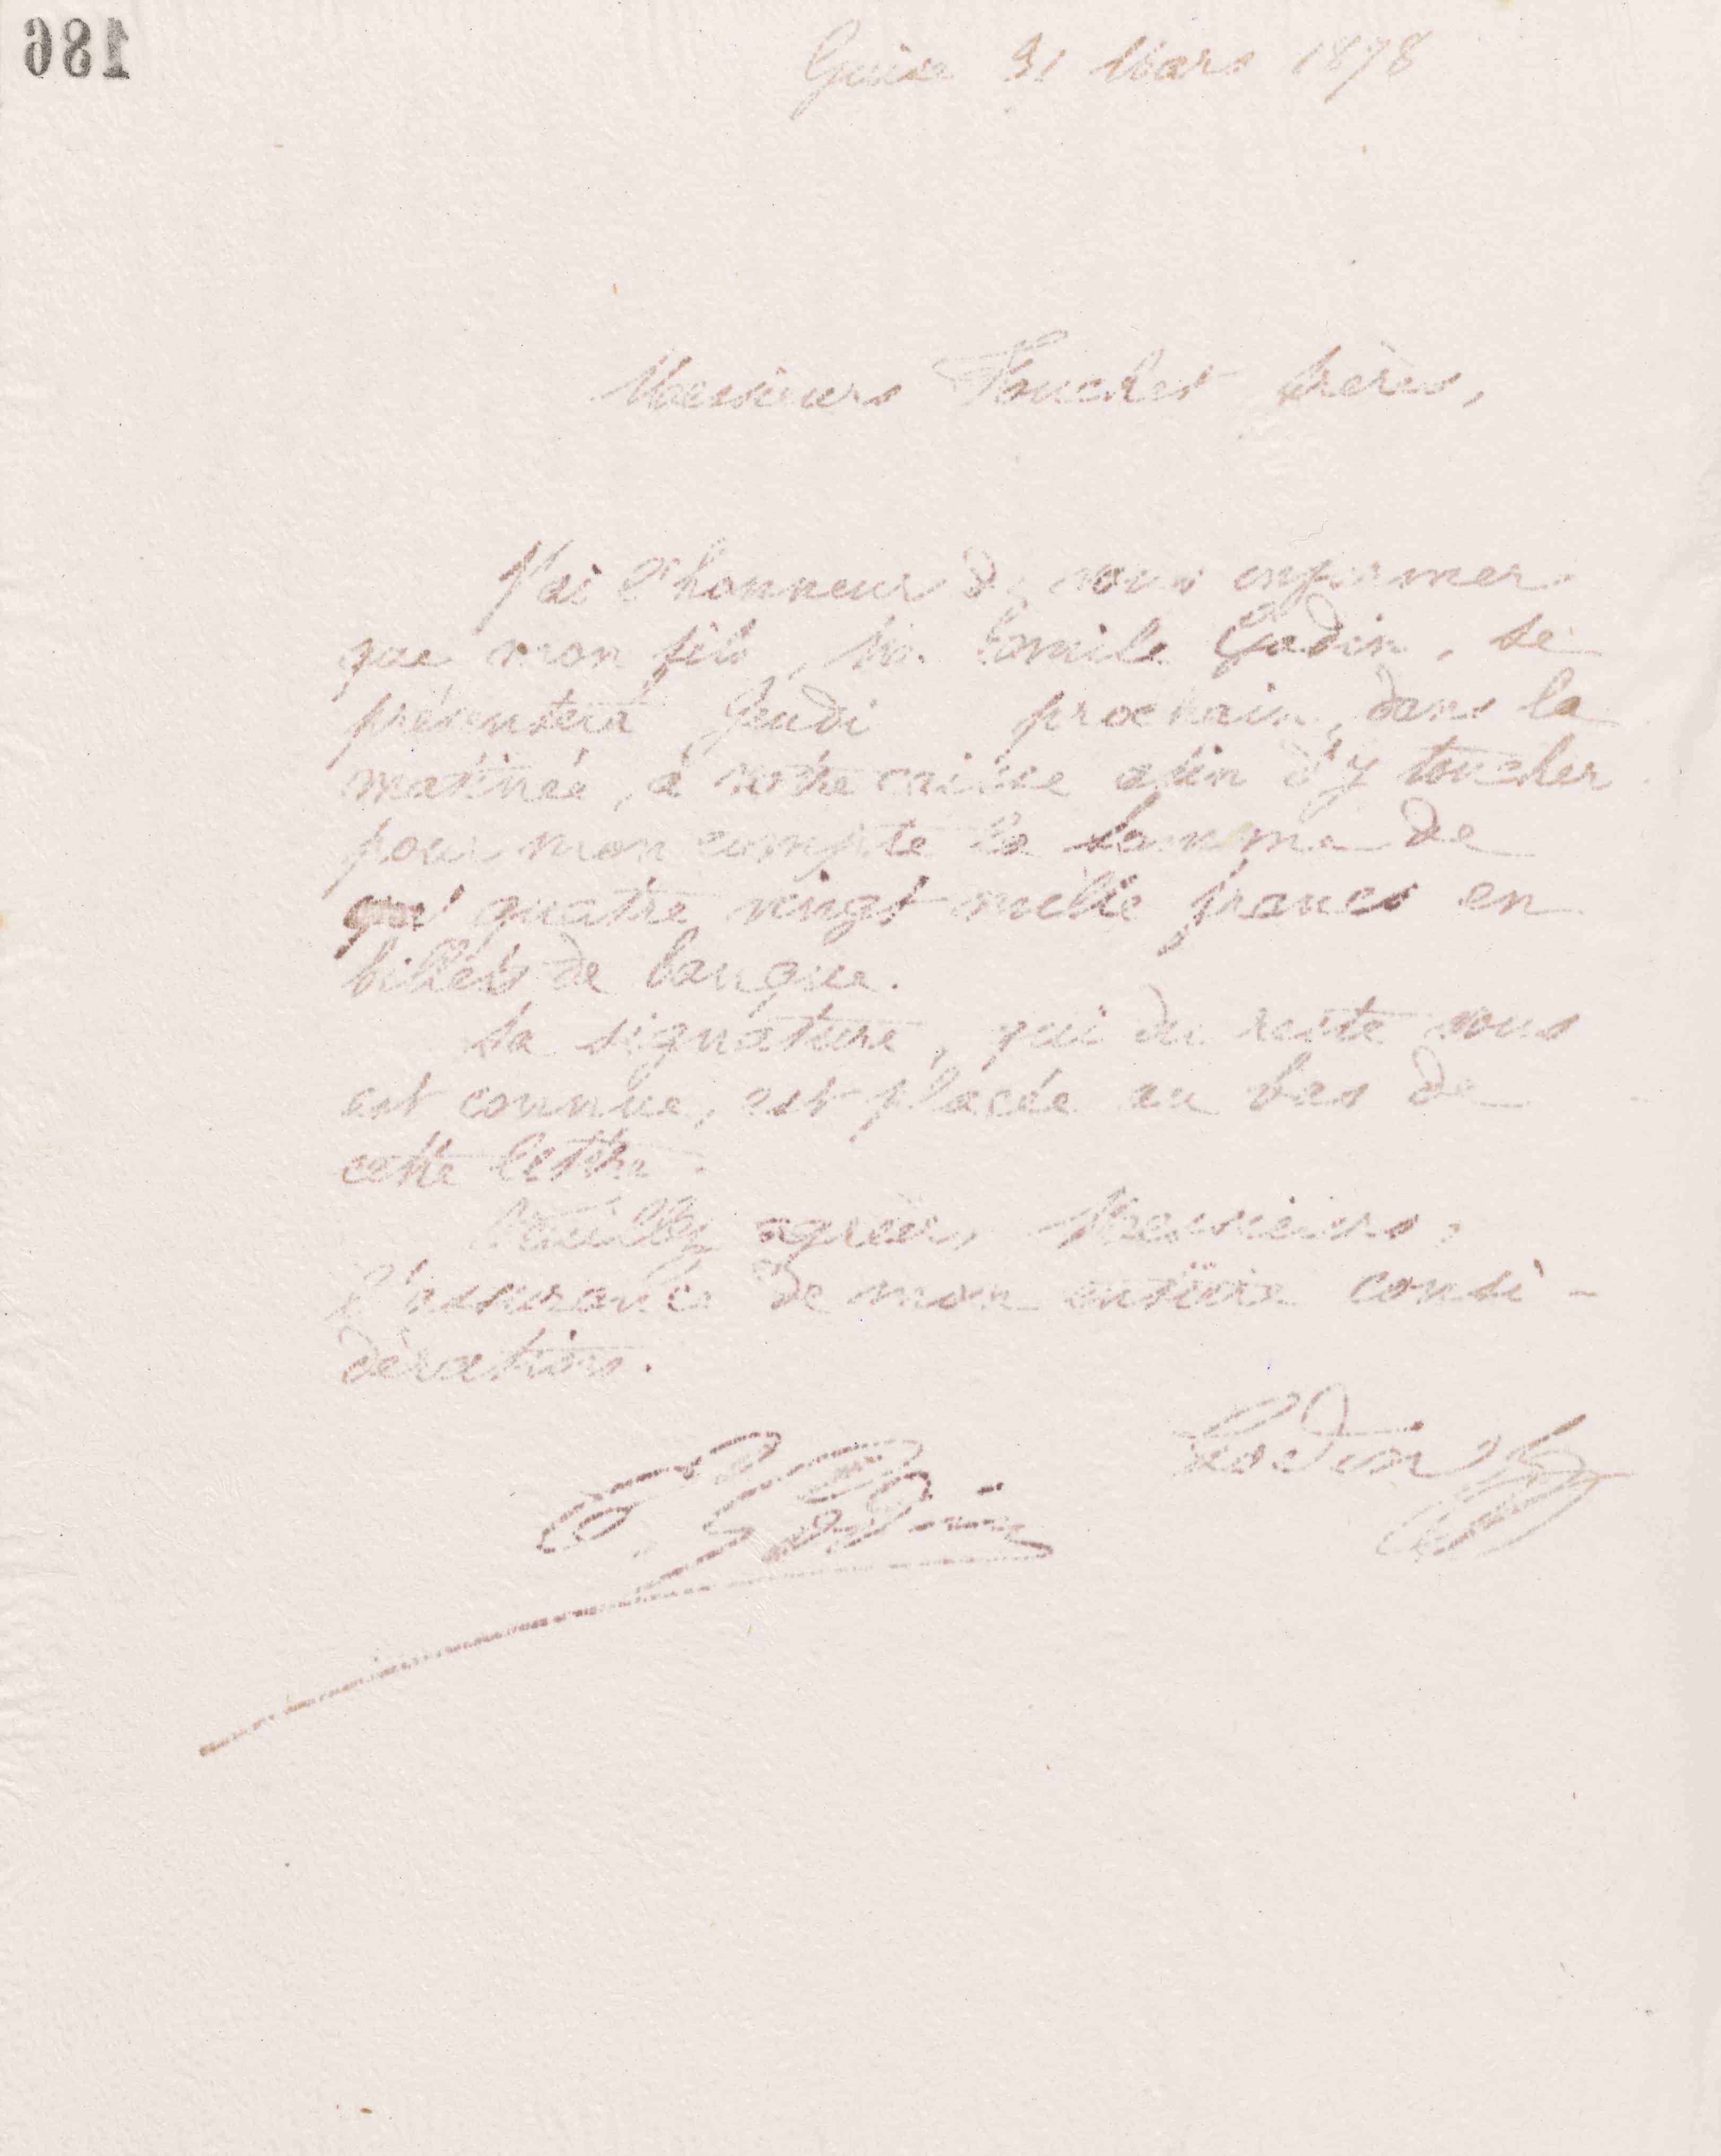 186
Guise 31 Mars 1878
Messieurs Foucher frères,
J'ai l'honneur de vous informer
que mon fils, Mr. Émile Godin, se
présentera Jeudi prochain, dans la
matinée, à votre caisse afin d'y toucher
pour mon compte la somme de
quatre vingt mille francs en
billets de banque.
Sa signature, qui du reste vous
est connue, est placée au bas de
cette lettre.
Veuillez agréer, Messieurs,
l'assurance de mon entière consi-
dération.
Godin
E. Godin